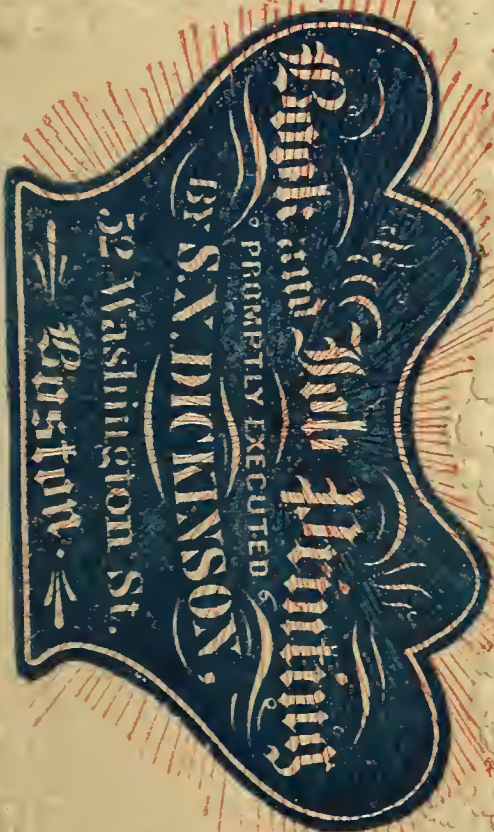 Book and Job Printing
PROMPTLY EXECUTED
BY S.N. DICKINSON,
52 Washington St.
Boston.